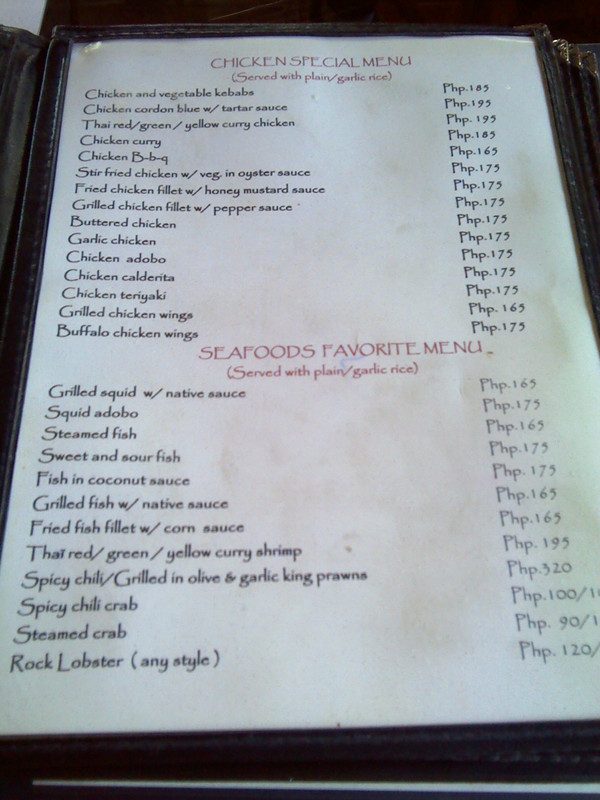 CHICKEN SPECIAL MENU
(Served with plain/garlic rice)
Chicken and vegetable kebabs Php.185
Chicken cordon blue w/ tartar sauce Php.195
Thai red/green / yellow curry chicken Php. 195
Chicken curry Php.185
Chicken B-b-q Php.165
Stir fried chicken w/ veg. in oyster sauce Php.175
Fried chicken fillet w/ honey mustard sauce Php.175
Grilled chicken fillet w/ pepper sauce Php.175
Buttered chicken Php.175
Garlic chicken Php.175
Chicken adobo Php.175
Chicken calderita Php.175
Chicken teriyaki Php.175
Grilled chicken wings Php. 165
Buffalo chicken wings Php.175
SEAFOODS FAVORITE MENU
(Served with plain/garlic rice)
Grilled squid w/ native sauce Php.165
Squid adobo Php.175
Steamed fish Php.165
Sweet and sour fish Php.175
Fish in coconut sauce Php. 175
Grilled fish w/ native sauce Php.165
Fried fish fillet w/ corn sauce Php.165
Thai red/ green / yellow curry shrimp Php. 195
Spicy chili/Grilled in olive & garlic king prawns Php.320
Spicy chili crab Php.100/
Steamed crab Php. 90/
Rock Lobster ( any style ) Php. 120/